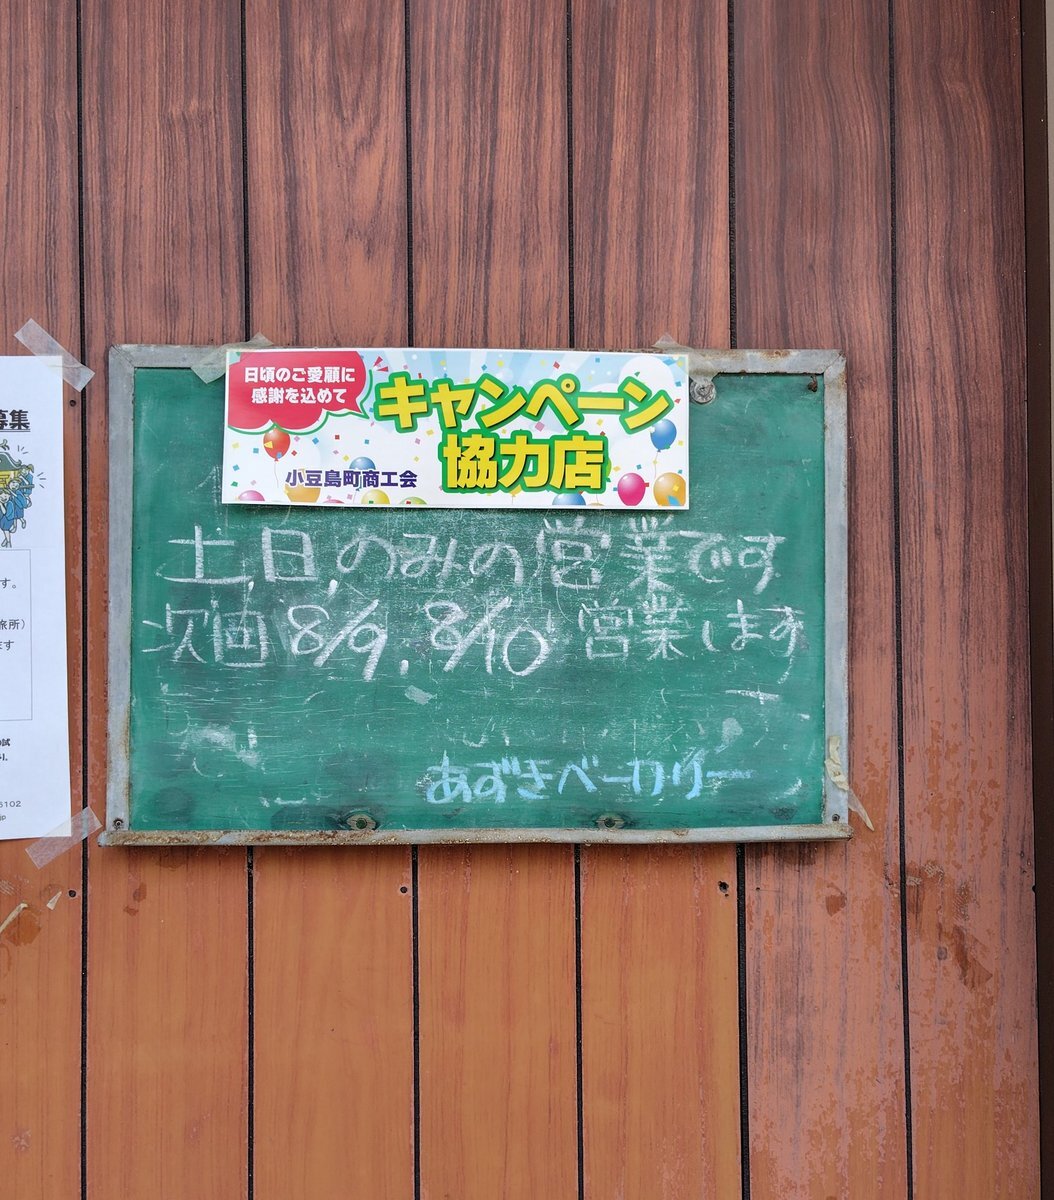 募集
す。
旅所)
ます
6102
jp
日頃のご愛顧に
感謝を込めて
キャンペーン
協力店
小豆島町商工会
土,日,のみの営業です
次画 8/9, 8/10 営業します
あずきベーカリー